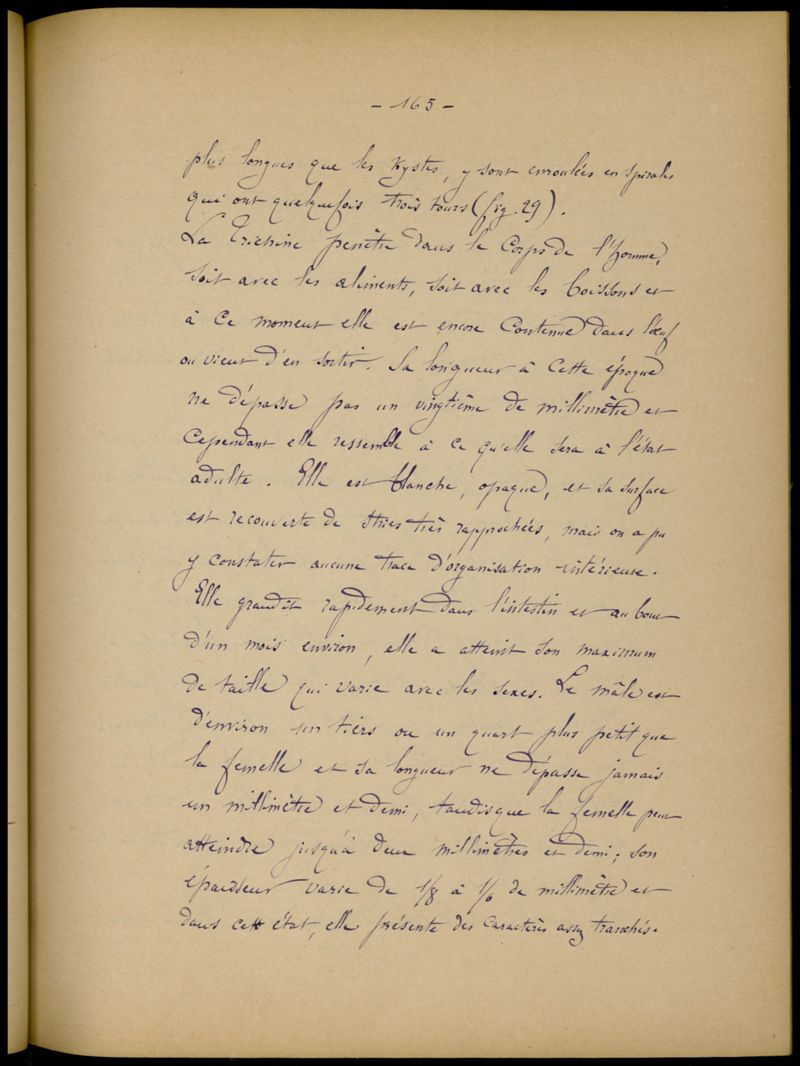 - 165 -
plus longues que les Kystes, y sont enroulées en spirales
qui ont quelquefois trois tours (fig. 29).
La Trichine pénètre dans le Corps de l'homme,
soit avec les aliments, soit avec les boissons et
à ce moment elle est encore contenue dans l'œuf
ou vient d'en sortir. Sa longueur à cette époque
ne dépasse pas un vingtième de millimètre et
cependant elle ressemble à ce qu'elle sera à l'état
adulte. Elle est blanche, opaque, et sa surface
est recouverte de stries très rapprochées, mais on a pu
y constater aucune trace d'organisation intérieure.
Elle grandit rapidement dans l'intestin et au bout
d'un mois environ, elle a atteint son maximum
de taille qui varie avec les sexes. Le mâle est
d'environ un tiers ou un quart plus petit que
la femelle et sa longueur ne dépasse jamais
un millimètre et demi, tandis que la femelle peut
atteindre jusqu'à deux millimètres et demi; son
épaisseur varie de 1/8 à de millimètre et
dans cet état, elle présente des caractères assez tranchés.